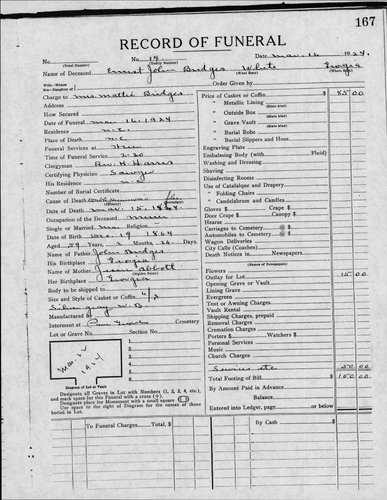 167
RECORD OF FUNERAL
No. No. 19 Date Mar. 16 1924
(Total Number) (Yearly Number)
Name of Deceased Ernest John Bridges White Georgia
(What Race) (Where Born)
Charge to Mrs. Mattie Bridges
Address
How Secured
Date of Funeral Mar. 16, 1924
Residence
Place of Death
Funeral Services at
Time of Funeral Service 2:30
Clergyman Rev. H. Harris
Certifying Physician Sawyer
His Residence
Number of Burial Certificate
Cause of Death
Date of Death Mar. 15, 1924
Occupation of the Deceased
Single or Married Ma Religion
Date of Birth Dec. 19 1864
Aged 59 Years, 2 Months, 26 Days.
Name of Father John Bridges
His Birthplace Georgia
Name of Mother Abbott
Her Birthplace Georgia
Body to be shipped to
Size and Style of Casket or Coffin 6/3
Silver gray
Manufactured by
Interment at Cemetery
Lot or Grave No.
1.
2.
3.
4.
5.
6.
Diagram of Lot or Vault
Designate all Graves in Lot with Numbers (1, 2, 3, 4, etc.),
and mark space for this Funeral with a cross (+).
Designate place for Monument with a small square
Use space to right of Diagram for the names of those
buried in Lot.
To Funeral Charges Total, $
Price of Casket or Coffin $ 85 00
" Metallic Lining
(State Kind)
" Outside Box
(State Kind)
" Grave Vault
(State Kind)
" Burial Robe
(State Kind)
" Burial Slippers and Hose
Engraving Plate
Embalming Body (with Fluid)
Washing and Dressing
Shaving
Disinfecting Rooms
Use of Catafalque and Drapery
" Folding Chairs
" Candelabrum and Candles
Gloves $ Crape $
Door Crape $ Canopy $
Hearse
Carriages to Cemetery @ $
Automobiles to Cemetery @ $
Wagon Deliveries
City Calls (Coaches)
Death Notices in Newspapers
(Names of Newspapers)
Flowers
Outlay for Lot 15 00
Opening Grave or Vault
Lining Grave
Evergreen
Tent or Awning Charges
Vault Rental
Shipping Charges, prepaid
Removal Charges
Cremation Charges
Porters $ Watchers $
Personal Services
Music
Church Charges
Services etc 50 00
Total Footing of Bill $ 150 00
By Amount Paid in Advance
Balance
Entered into Ledger, page or below
By Cash $